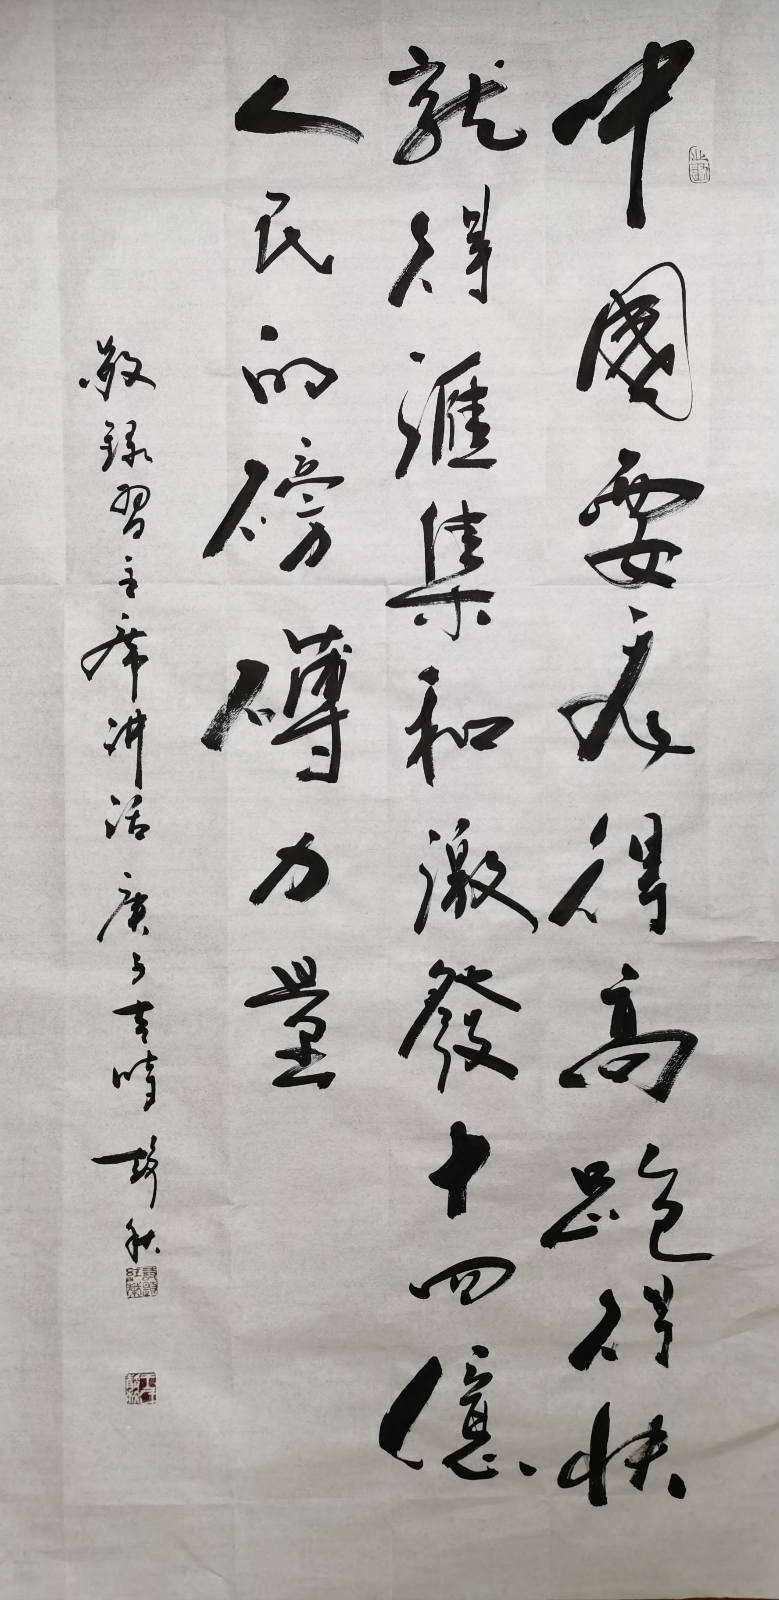 中國要飛得高跑得快
就得匯集和激發十四億
人民的磅礴力量
敬録習主席讲话庚子吉時 秋